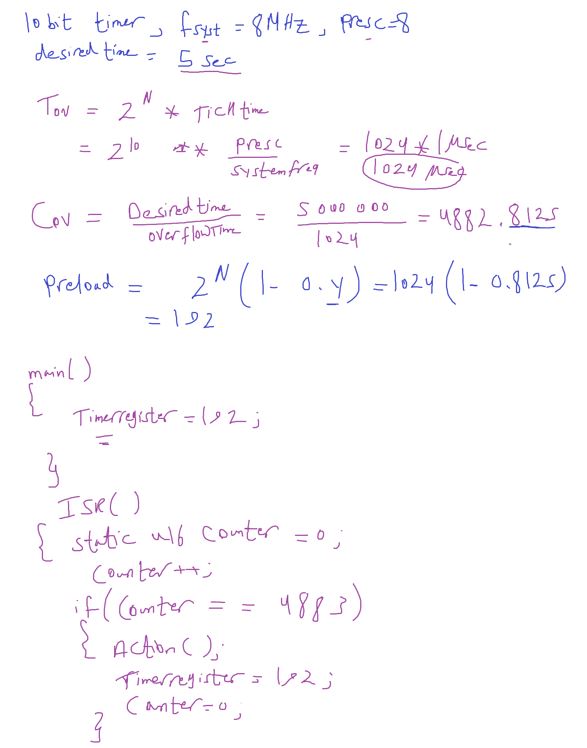 10 bit timer, fsyst = 8MHz, presc=8
desired time = 5 sec
Tov = 2^N * Tick time
= 2^10 ** Presc / system freq = 1024 * 1 Msec
1024 Msec
Cov = Desired time / overflow Time = 5 000 000 / 1024 = 4882.8125
Preload = 2^N (1- 0.y) = 1024 (1- 0.8125)
= 192
main()
{
Timer register = 192;
}
ISR()
{ static u16 Counter = 0;
Counter++;
if(Counter == 4883)
{ Action();
Timer register = 192;
Counter=0;
}